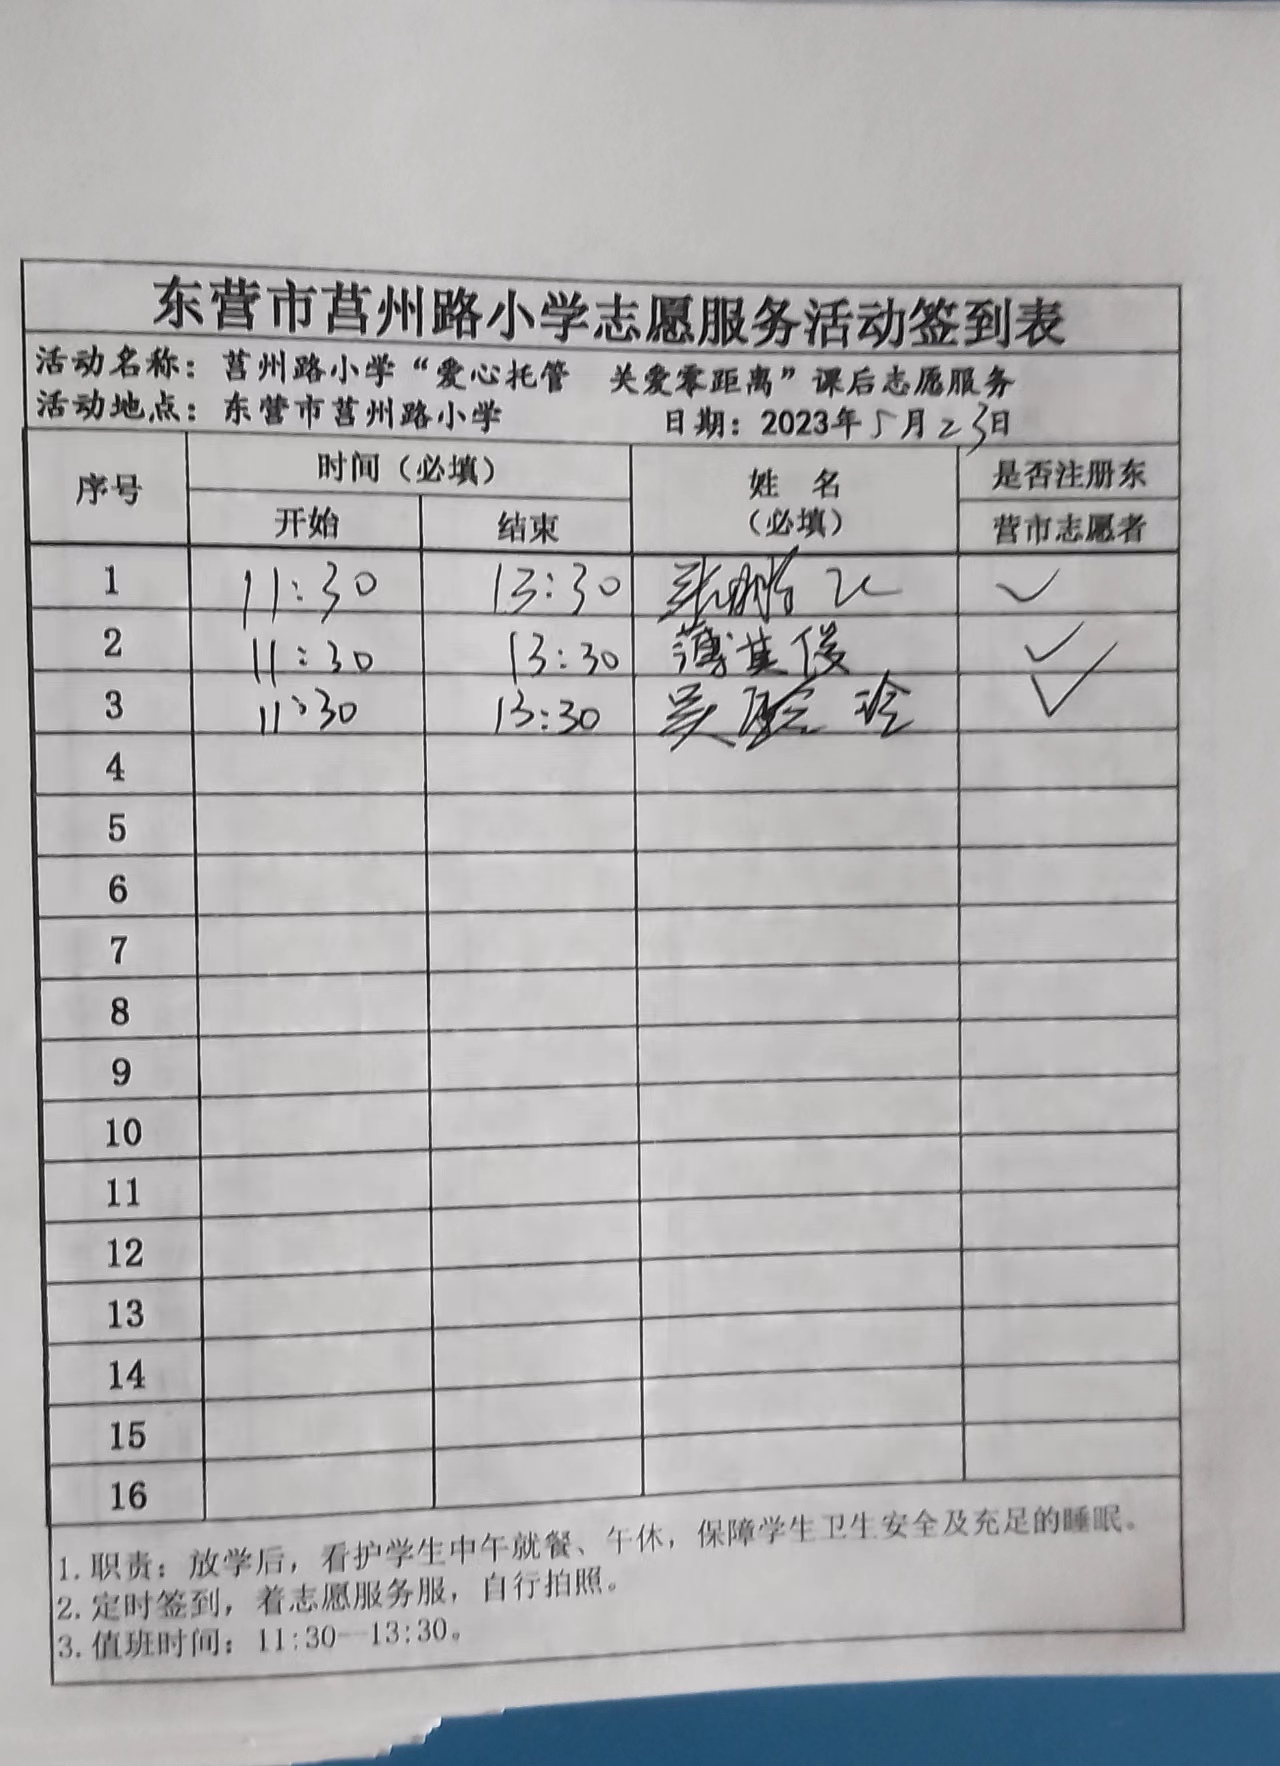 东营市莒州路小学志愿服务活动签到表
活动名称：莒州路小学“爱心托管 关爱零距离”课后志愿服务
活动地点：东营市莒州路小学 日期：2023年5月23日
序号 时间（必填） 姓 名（必填） 是否注册东营市志愿者
开始 结束
1 11:30 13:30 ✓
2 11:30 13:30 薄其俊 ✓
3 11:30 13:30 吴 玲 ✓
4
5
6
7
8
9
10
11
12
13
14
15
16
1.职责：放学后，看护学生中午就餐、午休，保障学生卫生安全及充足的睡眠。
2.定时签到，着志愿服务服，自行拍照。
3.值班时间：11:30—13:30。